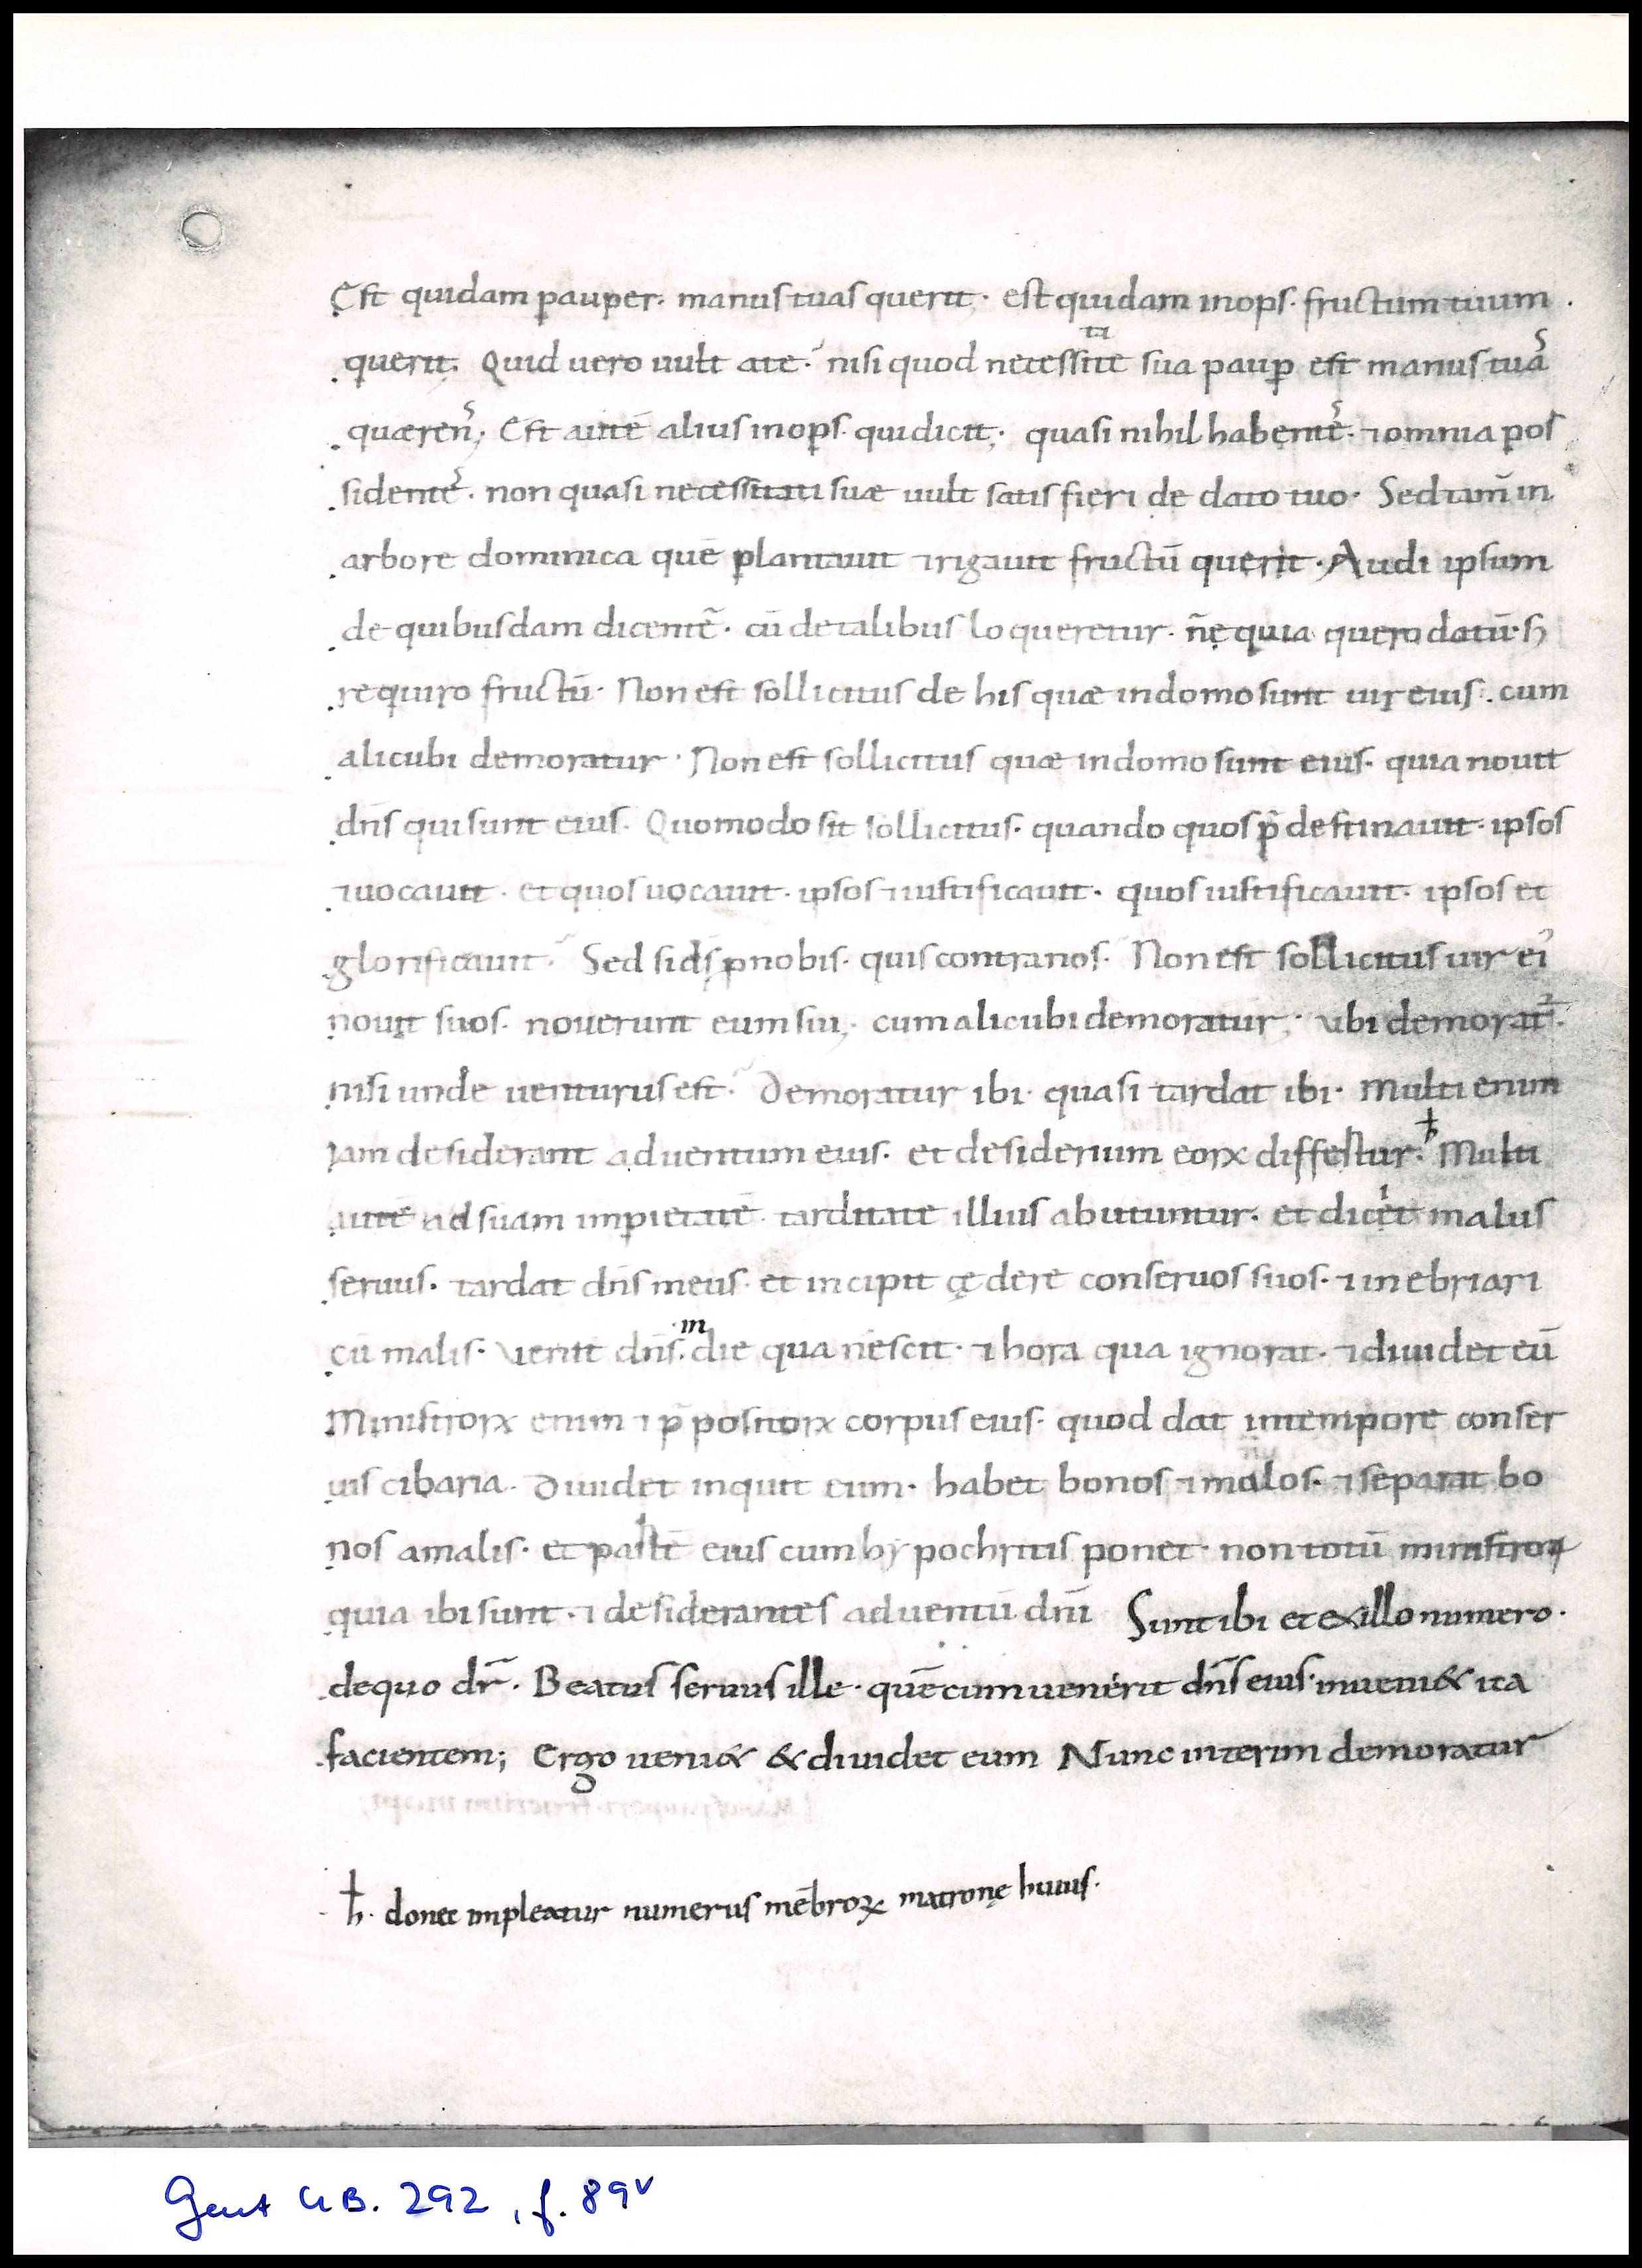 Est quidam pauper· manus tuas querit· est quidam inops· fructum tuum·
querit. Quid vero uult a te· nisi quod necessitate sua paup̱ est manus tuaˢ
quærenˢ; Est autē alius inops· qui dicit; quasi nihil habenteˢ· ⁊ omnia pos
sidenteˢ· non quasi necessitati suæ uult satis fieri de dato tuo· Sed tam̄ in
arbore dominica quē plantauit ⁊ rigauit fructū querit· Audi ipsum
de quibusdam dicentē· cū de talibus loqueretur· n̄ ę quia quero datū· sꝫ
requiro fructū· Non est sollicitus de his quæ in domo sunt uir eius· cum
alicubi demoratur· Non est sollicitus quæ in domo sunt eius· quia nouit
dn̄s qui sunt eius· Quomodo sit sollicitus· quando quos p̄destinauit· ipsos
⁊ uocauit· et quos uocauit· ipsos ⁊ iustificauit· quos iustificauit· ipsos et
glorificauit· Sed si dˢ ꝓ nobis· quis contra nos· Non est sollicitus uir ei᾿
nouit suos· nouerunt eum sui; cum alicubi demoratur; ubi demorat᷑·
nisi unde uenturus est· Demoratur ibi· quasi tardat ibi· Multi enim
iam desiderant aduentum eius· et desiderium eoꝝ differtur· ħ Multi
autē ad suam impietatē tarditate illius abutuntur· et dicet malus
seruus· tardat dn̄s meus· et incipit cędere conseruos suos· ⁊ inebriari
cū malis· Veniet dn̄s· in die qua nescit· ⁊ hora qua ignorat· ⁊ diuidet eū
Ministroꝝ enim ⁊ p̄positoꝝ corpus eius· quod dat in tempore conser
uis cibaria· Diuidet inquit eum· habet bonos ⁊ malos· ⁊ separat bo
nos a malis· et partē eius cum hypochritis ponet· non totū ministroꝝ
quia ibi sunt· ⁊ desiderantes aduentū dn̄i Sunt ibi et ex illo numero·
de quo dr̄· Beatus seruus ille· quē cum uenerit dn̄s eius· inueni& ita
facientem; Ergo ueni& & diuidet eum Nunc interim demoratur
ħ· donec impleatur numerus mēbroꝝ matronę huius·
Gent UB. 292, f. 89v